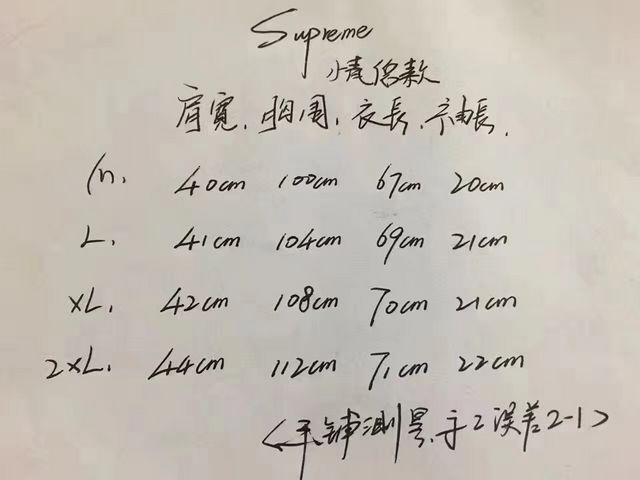 Supreme
情侶款
肩寬, 胸围, 衣長, 袖長,
m. 40cm 100cm 67cm 20cm
L. 41cm 104cm 69cm 21cm
XL. 42cm 108cm 70cm 21cm
2XL. 44cm 112cm 71cm 22cm
<平鋪測量, 手工误差2-1>